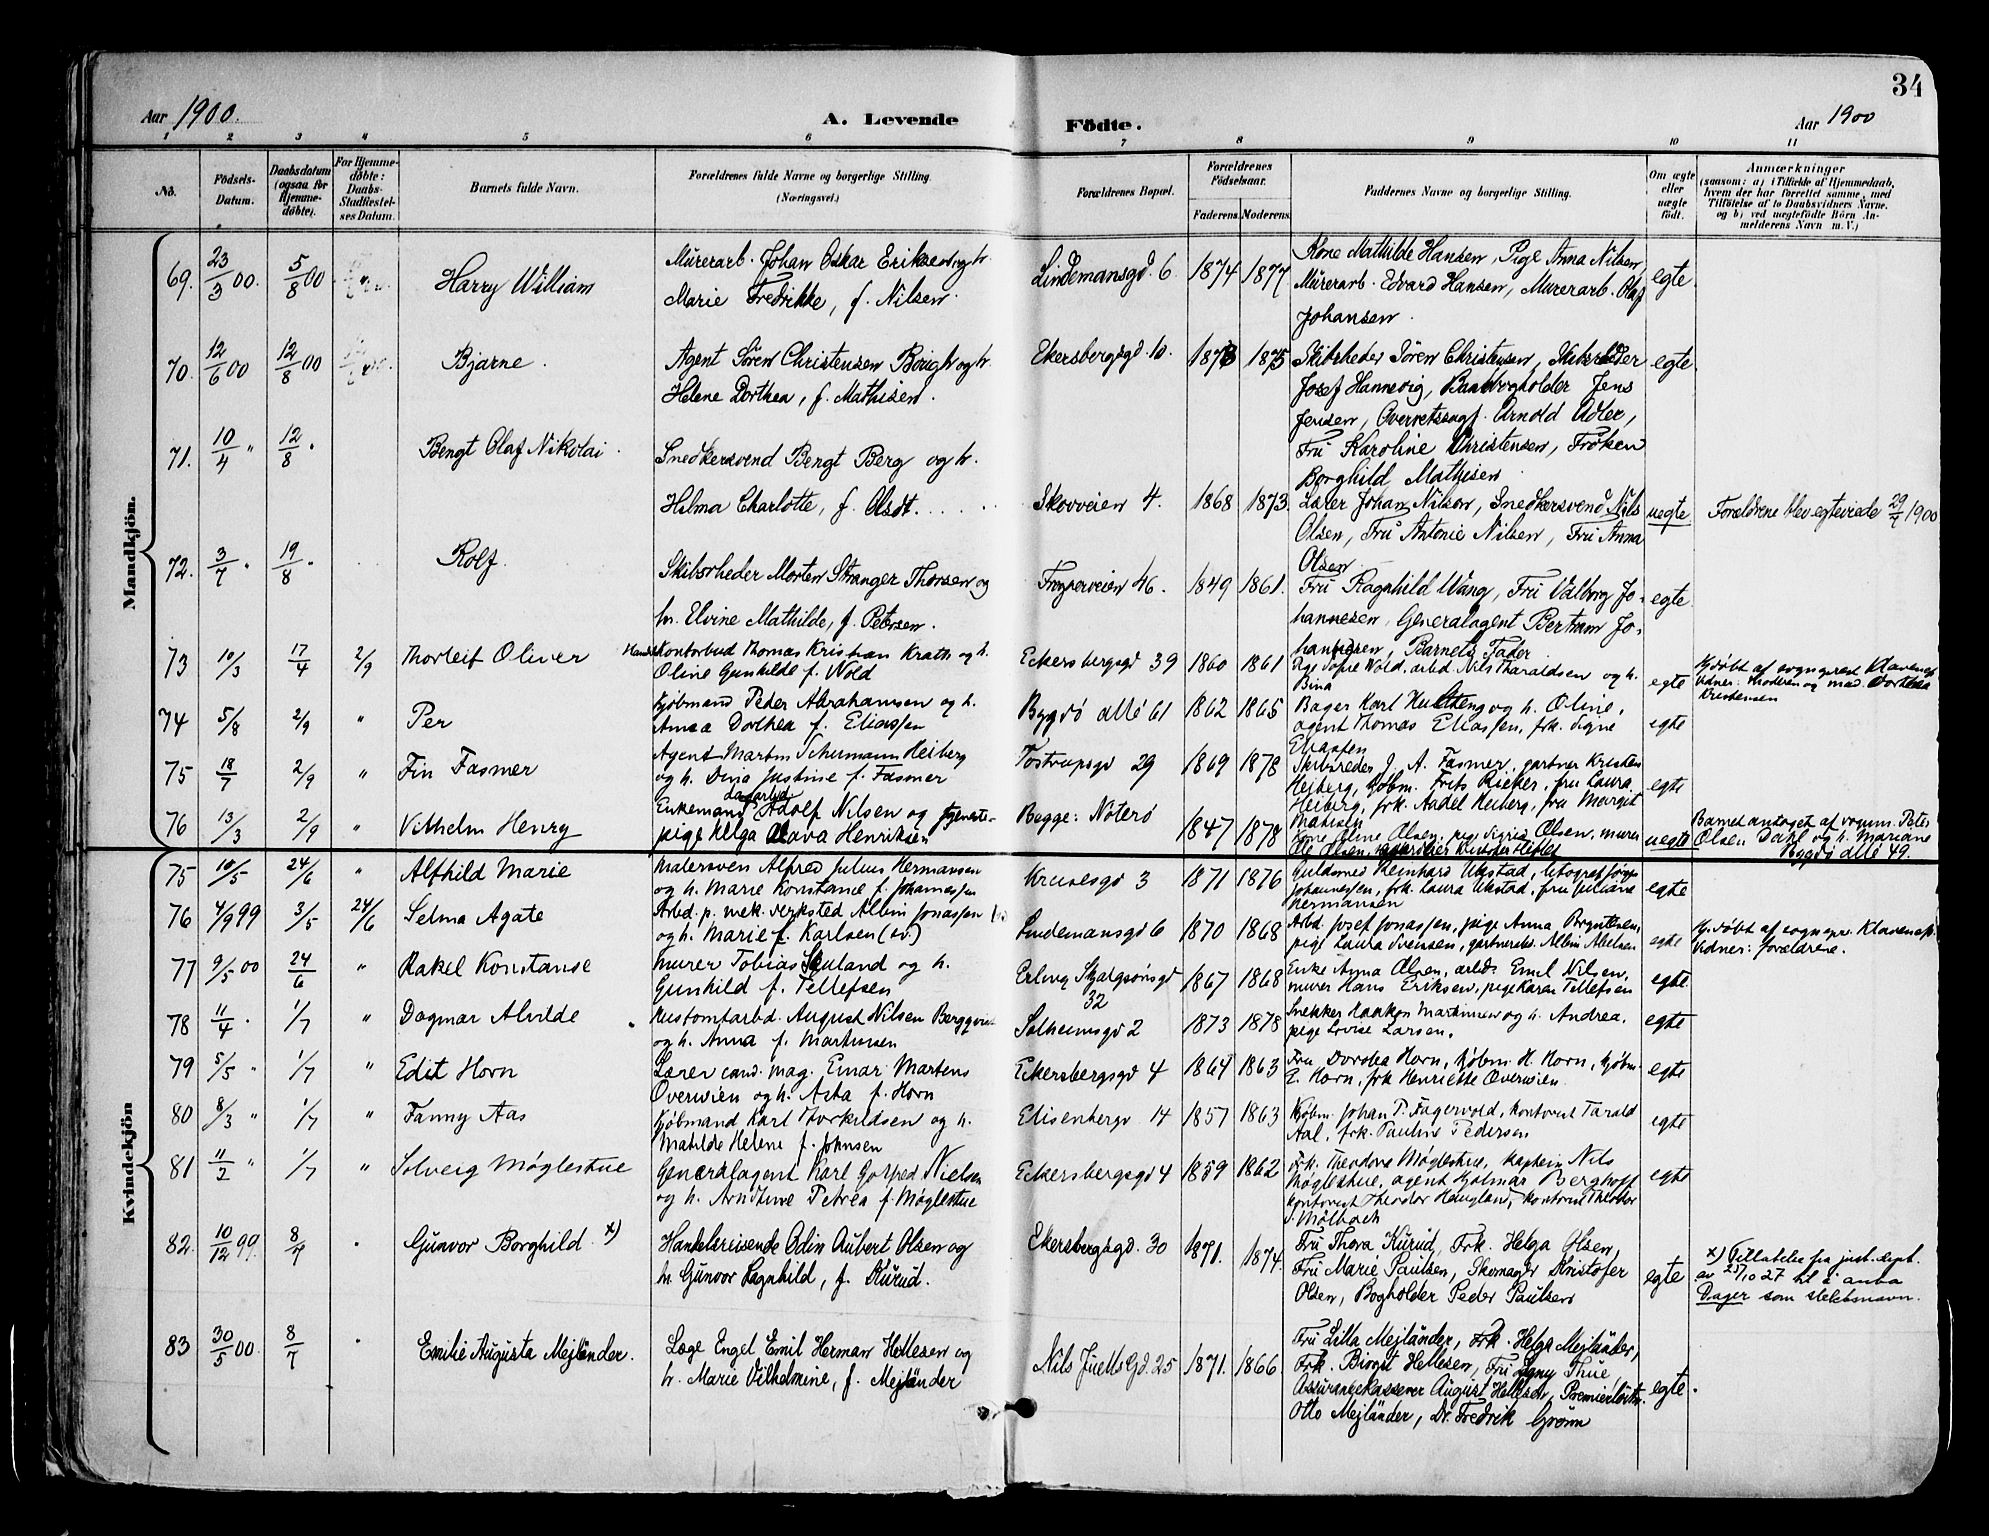 34
Aar 1900.
A. Levende
Födte.
Aar 1900
1 2 3 4 5 6 7 8 9 10 11
No.
Födsels-
Datum.
Daabsdatum
(ogsaa for
Hjemme-
döbte).
For Hjemme-
döbte:
Daabs-
Stadfæstel-
ses Datum.
Barnets fulde Navn.
Forældrenes fulde Navne og borgerlige Stilling.
(Næringsvei.)
Forældrenes Bopæl.
Forældrenes
Födselsaar.
Faderens.
Moderens.
Faddernes Navne og borgerlige Stilling.
Om ægte
eller
uægte
födt.
Anmærkninger
(saasom: a) i Tilfælde af Hjemmedaab,
hvem der har forrettet samme, med
Tilföielse af to Daabsvidners Navne,
og b) ved uægtefödte Börn An-
melderens Navn m. V.)
Mandkjön.
69. 23/3 00. 5/8 00 Harry William
Murerarb. Johan Oskar Eriksen og h.
Marie Fredrikke, f. Nilsen.
Lindemansgd. 6. 1874 1877
Kone Mathilde Hansen, Pige Anna Nilsen,
Murerarb. Edvard Hansen, Murerarb. Olaf
Johansen.
egte
70. 12/6 00 12/8 00 Bjarne.
Agent Sören Christensen og h.
Helene Dorthea, f. Mathisen.
Ekersbergsgd. 10. 1873 1875
Skibsrheder Sören Christensen, Skibsreder
Josef Hannevig, Bankbogholder Jens
Jensen, Overretssagf. Arnold Adler,
Fru Karoline Christensen, Fröken
Borghild Mathisen.
egte
71. 10/4 " 12/8 " Bengt Olaf Nikolai.
Snedkersvend Bengt Berg og h.
Hilma Charlotte, f. Olsdt.
Skovveien 4. 1868 1873.
Lærer Johan Nilson, Snedkersvend Nils
Olsen, Fru Antonie Nilsen, Fru Anna
Olsen.
uegte
Forældrene blev egteviede 29/7 1900
72. 3/7 " 19/8 " Rolf.
Skibsrheder Morten Stranger Thorsen og
h. Elvine Mathilde, f. Petersen.
Frognerveien 46. 1849 1861.
Fru Ragnhild Wang, Fru Valborg Jo-
hannesen, Generalagent Bertram Jo-
hannesen, Barnets Fader.
egte
73 10/3 17/4 2/9 Thorleif Oliver
Kontorbud Thomas Kristian Krath og h.
Oline Gunhilde f. Wold
Eckersbergsgd 39 1860 1861
Pige Sofie Wold, arbd. Nils Tharaldsen og h.
Bina
egte
Hj.döbt af sognepræst Klaveness
Vidner: Moderen og mad. Dorthea
Kristensen
74 5/8 2/9 " Per
Kjöbmand Peder Abrahamsen og h.
Anna Dorthea f. Eliassen
Bygdö allé 61 1862 1865
Bager Karl og h. Oline,
agent Thomas Eliassen, frk. Signe
Eliassen
egte
75 18/7 2/9 " Fin Fasmer
Agent Martin Schumann Heiberg
og h. Dina Justine f. Fasmer
Tostrupsgd 29 1869 1878
Skibsreder J. A. Fasmer, gartner Kristen
Heiberg, kjöbm. Frits Rieker, fru Laura
Heiberg, frk. Aadel Heiberg, fru Margit
Madsen
egte
76 13/3 2/9 " Vilhelm Henry
dagarbd.
Enkemand Adolf Nilsen og tjeneste-
pige Helga Olava Henriksen
Begge: Noterö 1847 1878
Kone Oline Olsen, pige Sigrid Olsen, murer
Ole Olsen,
uegte
Barnet antaget af vognm. Peter
Olsen Dahl og h. Mariane
Bygdö allé 49.
Kvindekjön
75 10/5 24/6 " Alfhild Marie
Malersven Alfred Julius Hermansen
og h. Marie Konstance f. Johannessen
Krusesgd 3 1871 1876
Guldsmed Reinhard Ukstad, litograf Jörgen
Johannessen, frk. Laura Ukstad, fru Juliane
Hermansen
egte
76 4/9 99 3/5 24/6 Selma Agate
Arbd. p. mek. verksted Albin Jonassen
og h. Marie f. Karlsen (sv)
Lindemansgd 6 1870 1868
Arbd. Josef Jonassen, pige Anna Bryntesen,
pige Laura Svensen, gartnerarb. Albin Nielsen
egte
Hj.döbt af sognepr. Klaveness.
Vidner: forældrene.
77 9/5 00 24/6 " Rakel Konstanse
Murer Tobias Skuland og h.
Gunhild f. Tellefsen
Erling Skjalgsönsgd
32 1867 1868
Enke Anna Olsen, arbd. Emil Nilsen,
murer Hans Eriksen, pige Karen Tellefsen
egte
78 11/4 " 1/7 " Dagmar Alvilde
Kustomtarbd. August Nilsen Bergqvist
og h. Anna f. Martinsen
Solheimsgd 2 1873 1878
Snekker Haakon Martinsen og h. Andrea,
pige Lovise Larsen.
egte
79 5/5 " 1/7 " Edit Horn
Lærer cand. mag. Einar Martens
Overwien og h. Asta f. Horn
Eckersbergsgd 4 1864 1863
Fru Dorthea Horn, kjöbm. H. Horn, kjöbm.
E. Horn, frk Henriette Overwien.
egte
80 8/3 " 1/7 " Fanny Aas
Kjöbmand Karl Thorkildsen og h.
Matilde Helene f. Johnsen
Elisenbergv 14 1857 1863
Kjöbm. Johan P. Fagervold, kontorist Tarald
Aal, frk. Pauline Pedersen
egte
81 11/2 " 1/7 " Solveig Möglestue
Generalagent Karl Gotfred Nielsen
og h. Arndtine Petrea f. Möglestue
Eckersbergsgd 4 1859 1862
Frk. Theodora Möglestue, kaptein Nils
Möglestue, agent Hjalmar Berghoff
kontorist Theodor Haugland, kontorist Theodor
S. Mölbach
egte
82. 10/12 99. 8/7 " Gunvor Borghild x)
Handelsreisende Odin Aubert Olsen og
h. Gunvor Ragnhild, f. Kurud.
Ekersbergsgd. 30 1871. 1874.
Fru Thora Kurud, Frk. Helga Olsen,
Fru Marie Paulsen, Skomager Kristofer
Olsen, Bogholder Peder Paulsen
egte
x) Tillatelse fra just.dept.
av 25/10 27 til å anta
Dager som slektsnavn.
83 30/5 00. 8/7 " Emilie Augusta Mejländer.
Læge Engel Emil Herman Hellesen og
h. Marie Vilhelmine, f. Mejländer
Nils Juels Gd. 25 1871. 1866.
Fru Lilla Mejländer, Frk. Helga Mejländer,
Frk. Birgit Hellesen, Fru Signy Thue,
Assurancekasserer August Hellesen, Premierlöitn.
Otto Mejländer, Dr. Fredrik Grönn
egte.